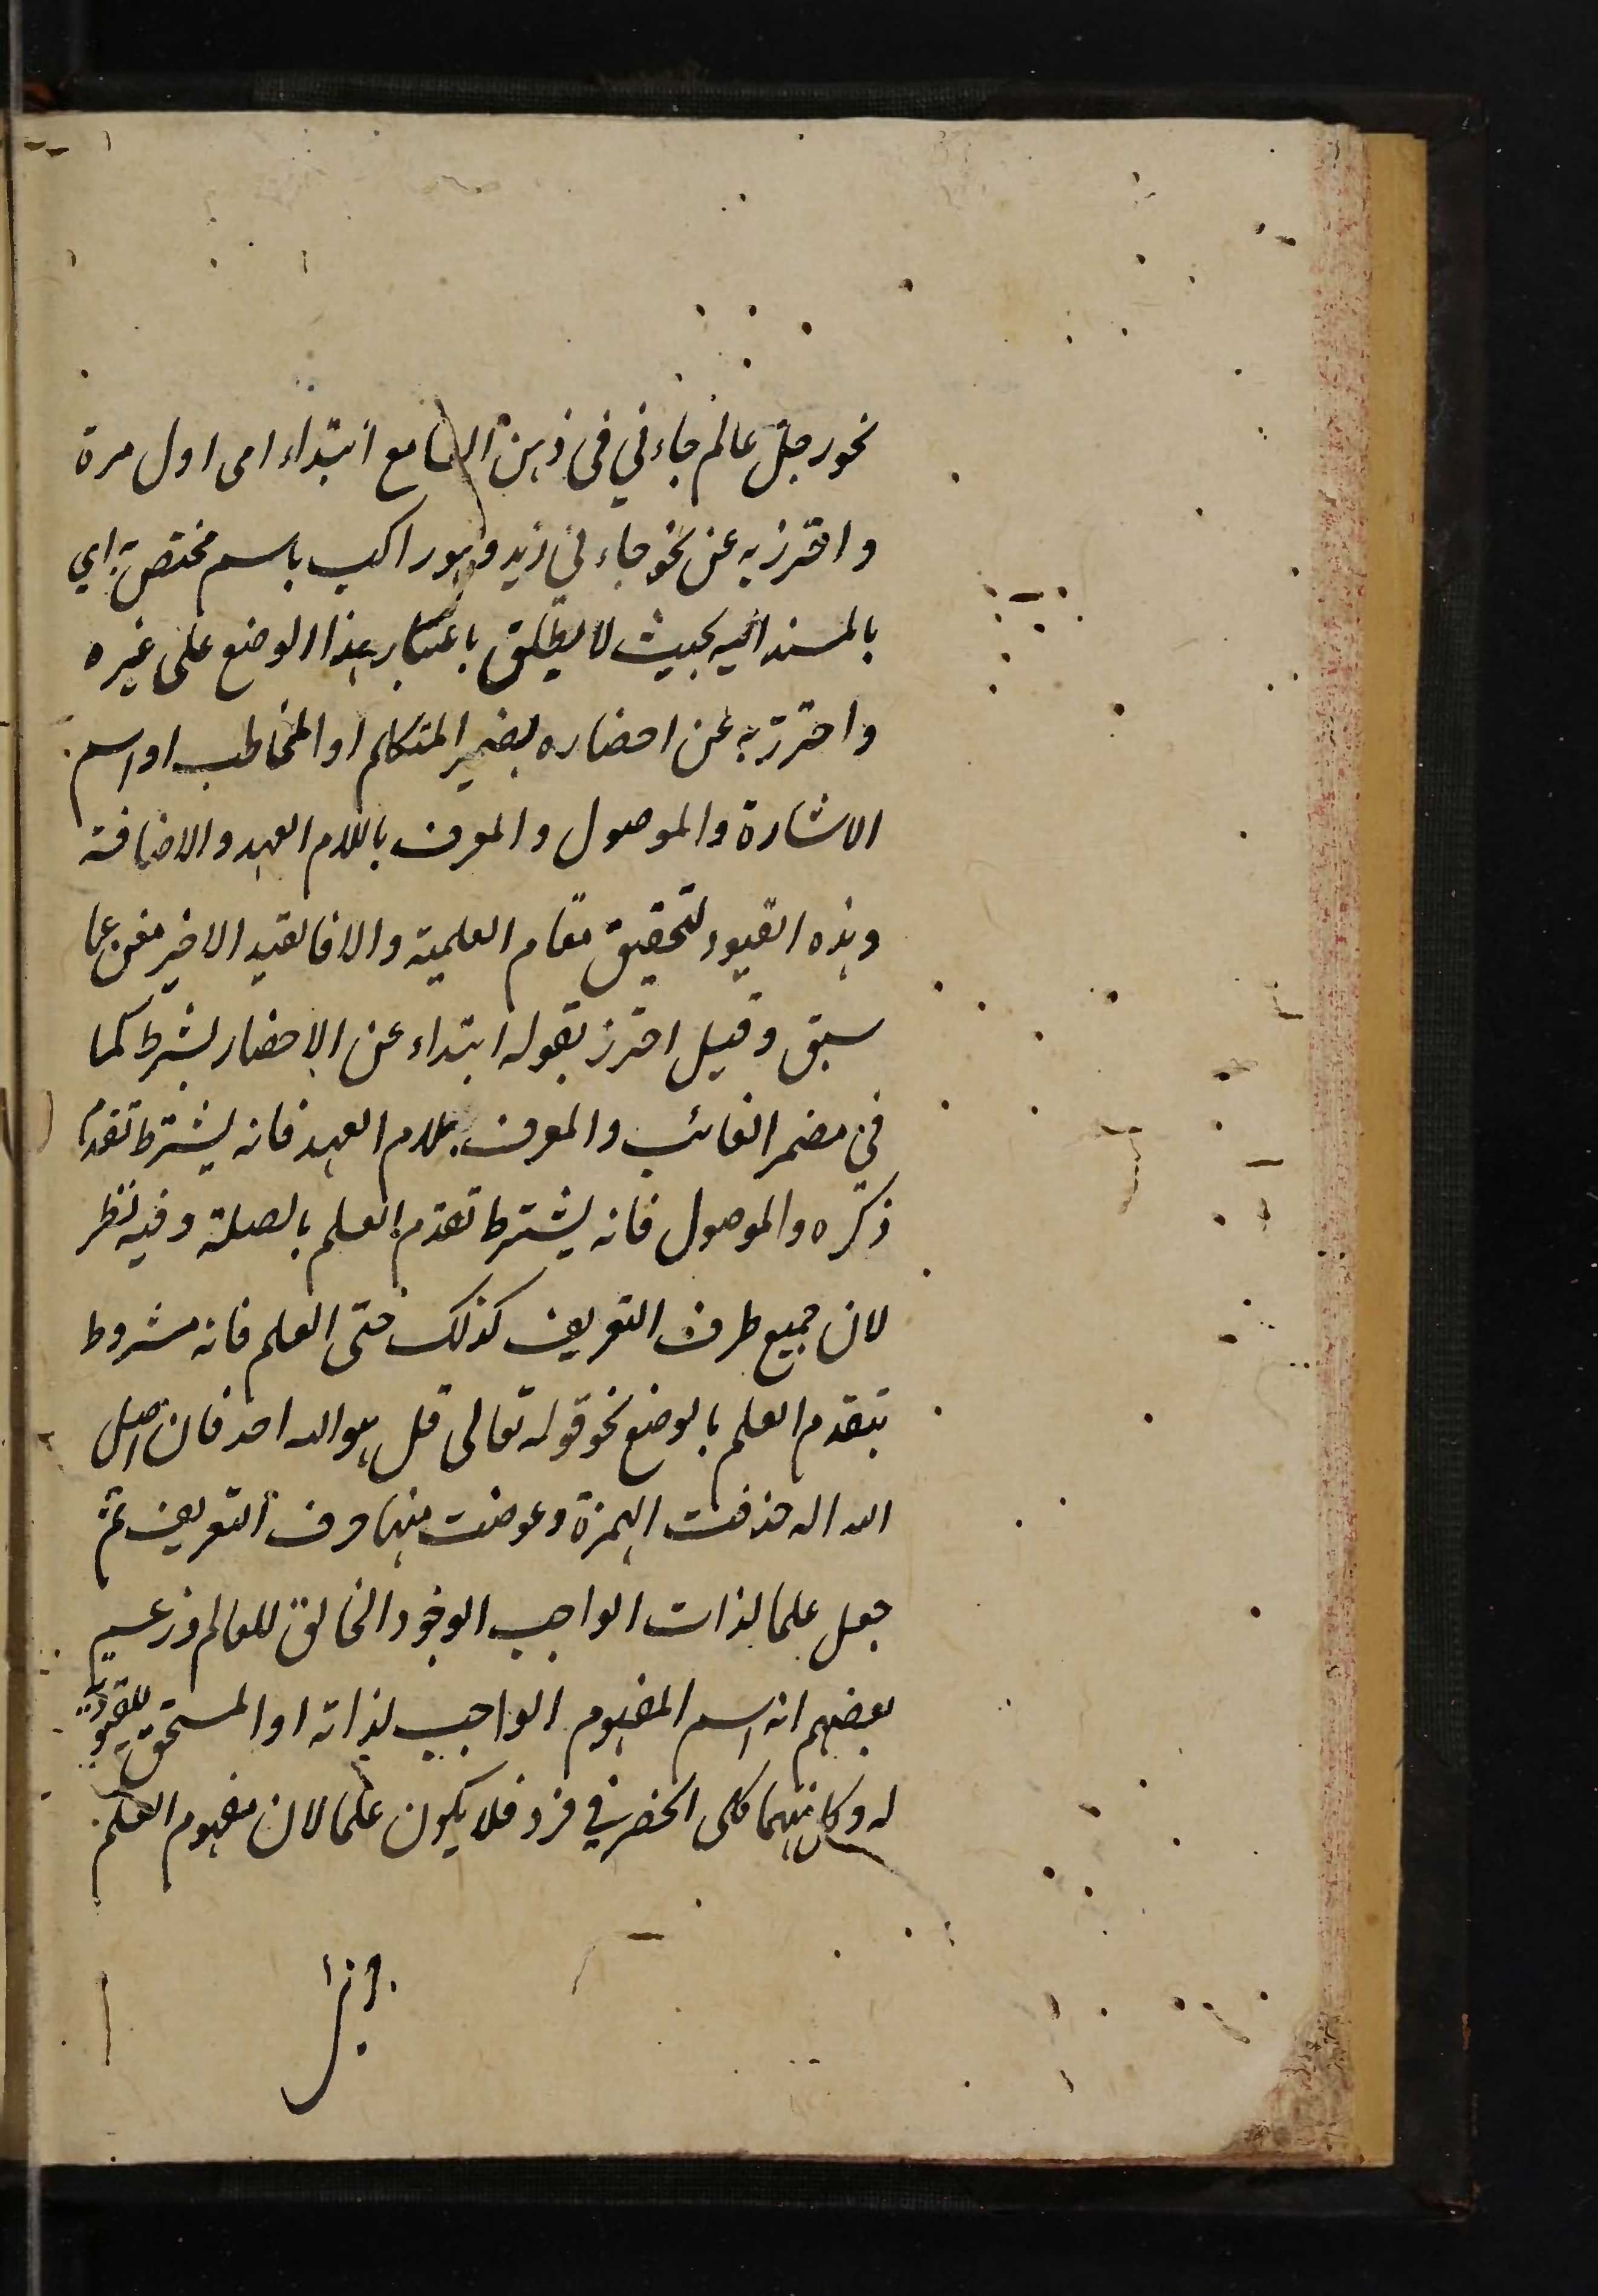 نحو رجل عالم جاءني في ذهن السامع ابتداء اى اول مرة
واحترز به عن نحو جاءني زيد وهو راكب باسم مختص به اي
بالمسند اليه بحيث لا يطلق باعتبار هذا الوضع على غيره
واحترز به عن احضاره بضمير المتكلم او المخاطب او اسم
الاشارة والموصول والمعرف باللام العهد والاضافة
وهذه القيود لتحقيق مقام العلمية والا فالقيد الاخير مغن عما
سبق وقيل احترز بقوله ابتداء عن الاحضار بشرط كما
في مضمر الغائب والمعرف بلام العهد فانه يشترط تقدم
ذكره والموصول فانه يشترط تقدم العلم بالصلة وفيه نظر
لان جميع طرق التعريف كذلك حتى العلم فانه مشروط
بتقدم العلم بالوضع نحو قوله تعالى قل هو الله احد فان اصل
الله اله حذفت الهمزة وعوضت منها حرف التعريف ثم
جعل علما لذات الواجب الوجود الخالق للعالم وزعم
بعضهم انه اسم المفهوم الواجب لذاته او المستحق للعبودية
له وكل منهما كلى انحصر في فرد فلا يكون علما لان مفهوم العلم